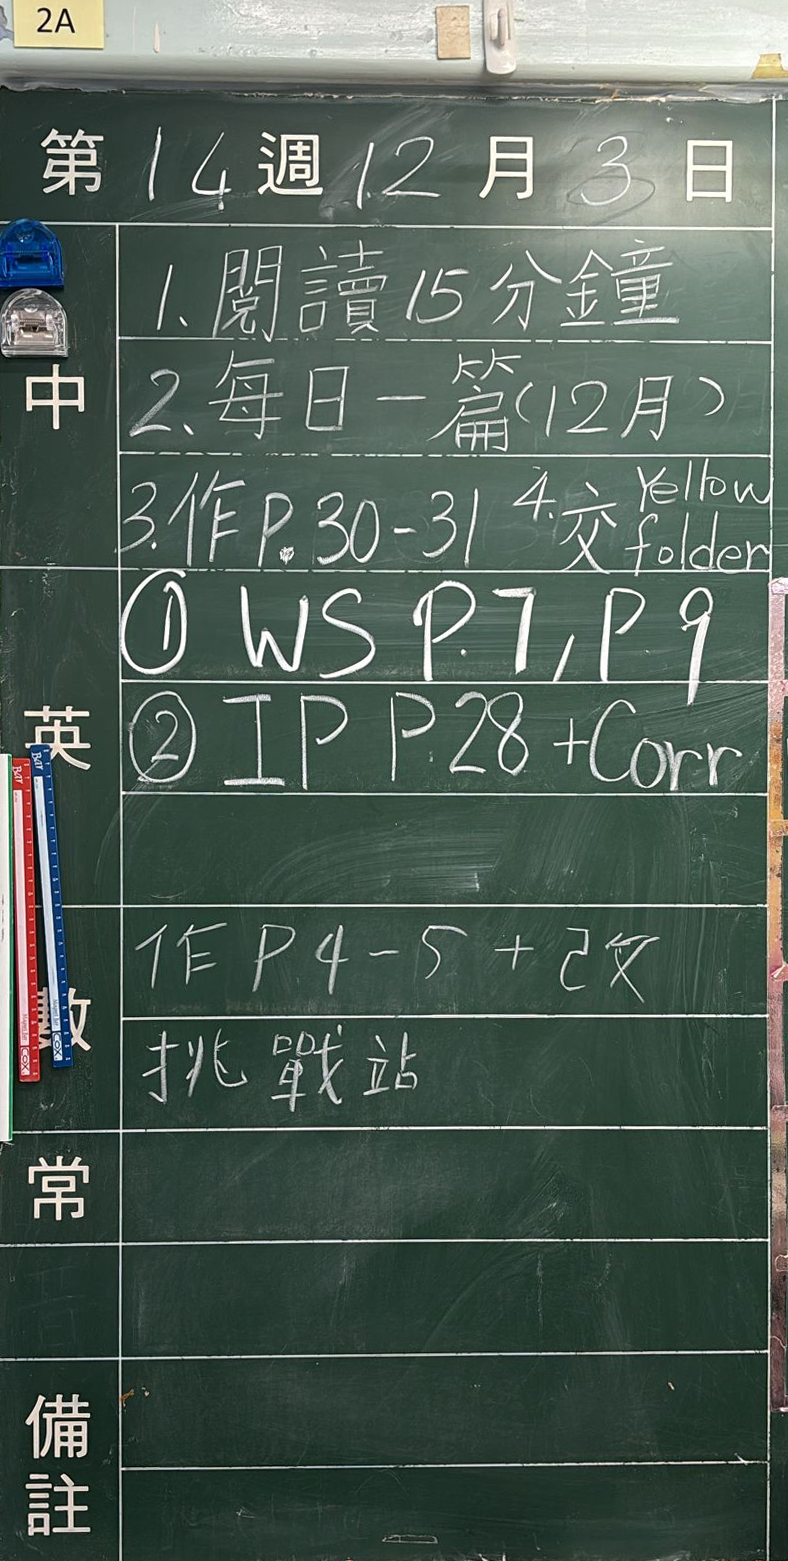 2A
第14週12月3日
中
1.閱讀15分鐘
2.每日一篇(12月)
3.作P.30-31 4.交 Yellow folder
英
① WS P.7, P 9
② IP P.28 +Corr
數
作 P.4-5 + 改
挑戰站
常
備註